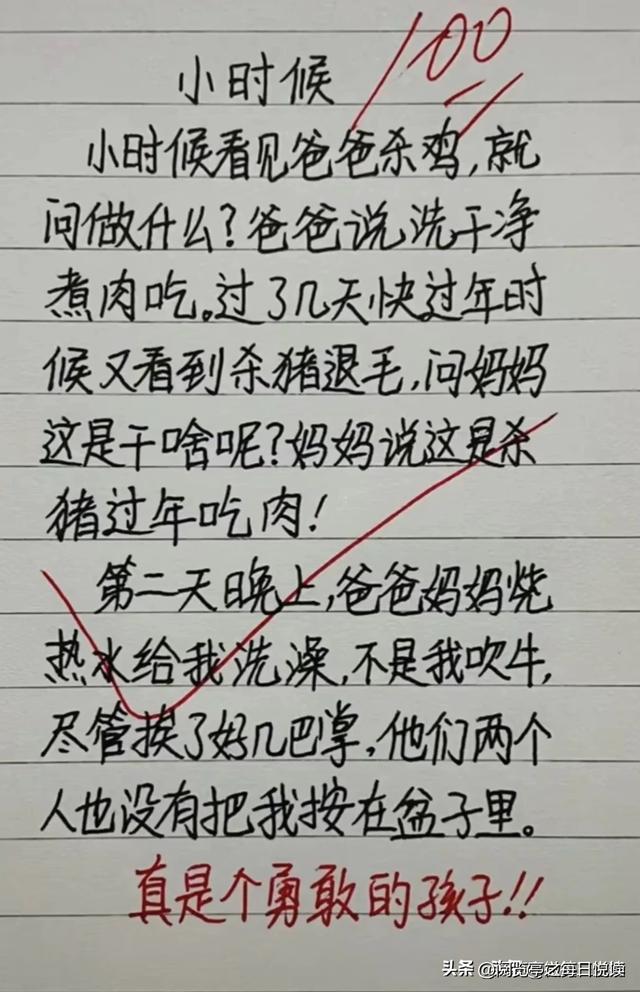 100
小时候
小时候看见爸爸杀鸡,就
问做什么?爸爸说洗干净
煮肉吃。过了几天快过年时
候又看到杀猪退毛,问妈妈
这是干啥呢?妈妈说这是杀
猪过年吃肉!
第二天晚上,爸爸妈妈烧
热水给我洗澡,不是我吹牛,
尽管挨了好几巴掌,他们两个
人也没有把我按在盆子里。
真是个勇敢的孩子!!
头条